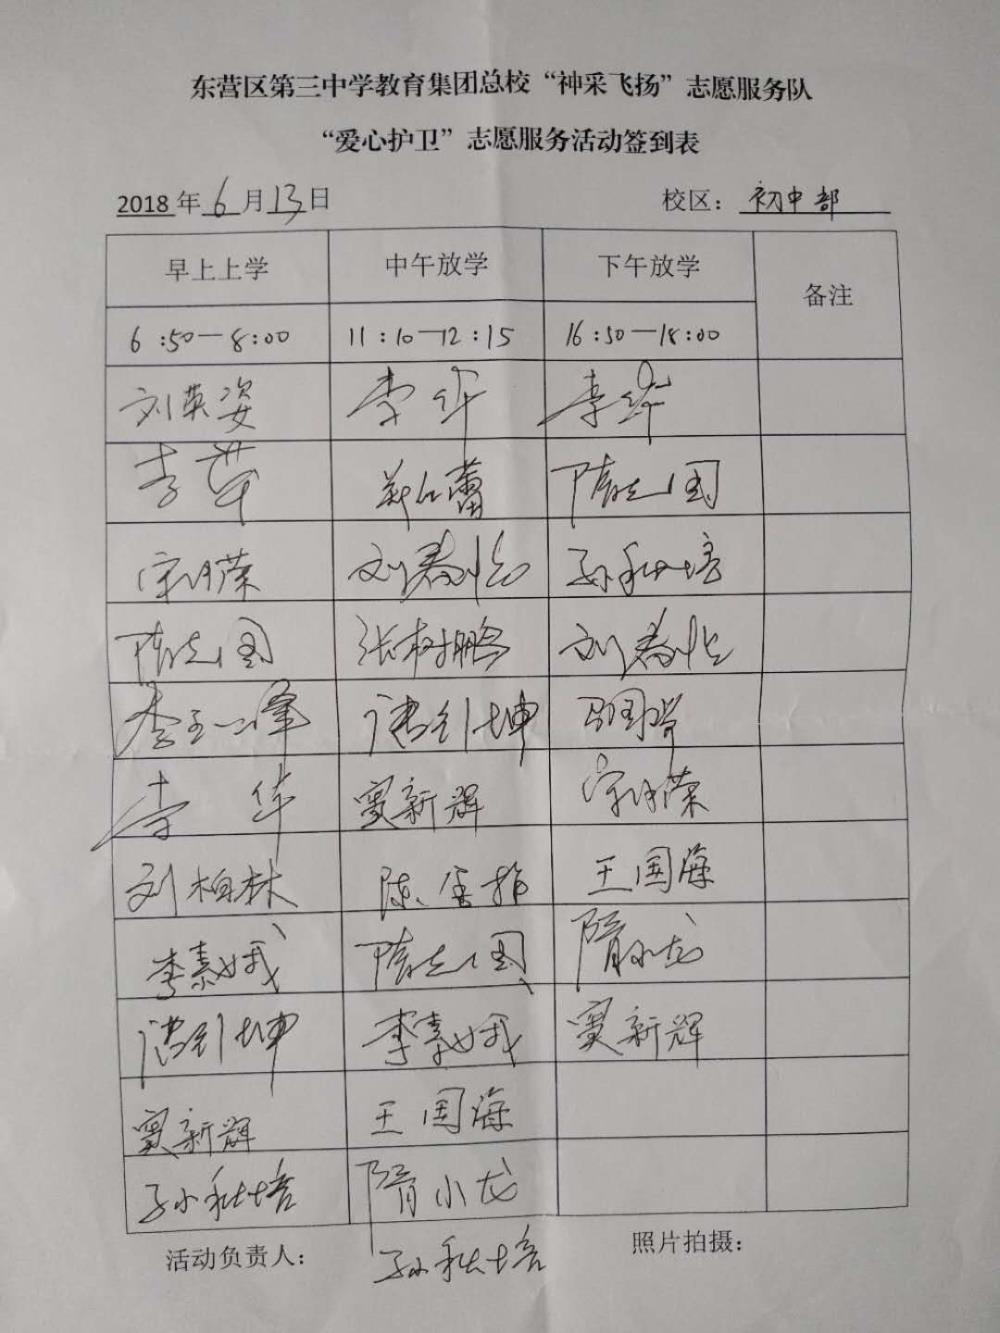 东营区第三中学教育集团总校“神采飞扬”志愿服务队
“爱心护卫”志愿服务活动签到表
2018年6月13日 校区：初中部
早上上学 中午放学 下午放学 备注
6:50—8:00 11:10—12:15 16:50—18:00
刘英姿 李华 李华
李华
宋月荣 刘春怡 孙秋培
张树鹏 刘春怡
李 峰
李华 窦新辉 宋月荣
刘柏林 陈 王国海
李素娥 隋小龙
李素娥 窦新辉
窦新辉 王国海
孙秋培 隋小龙
活动负责人： 孙秋培 照片拍摄：